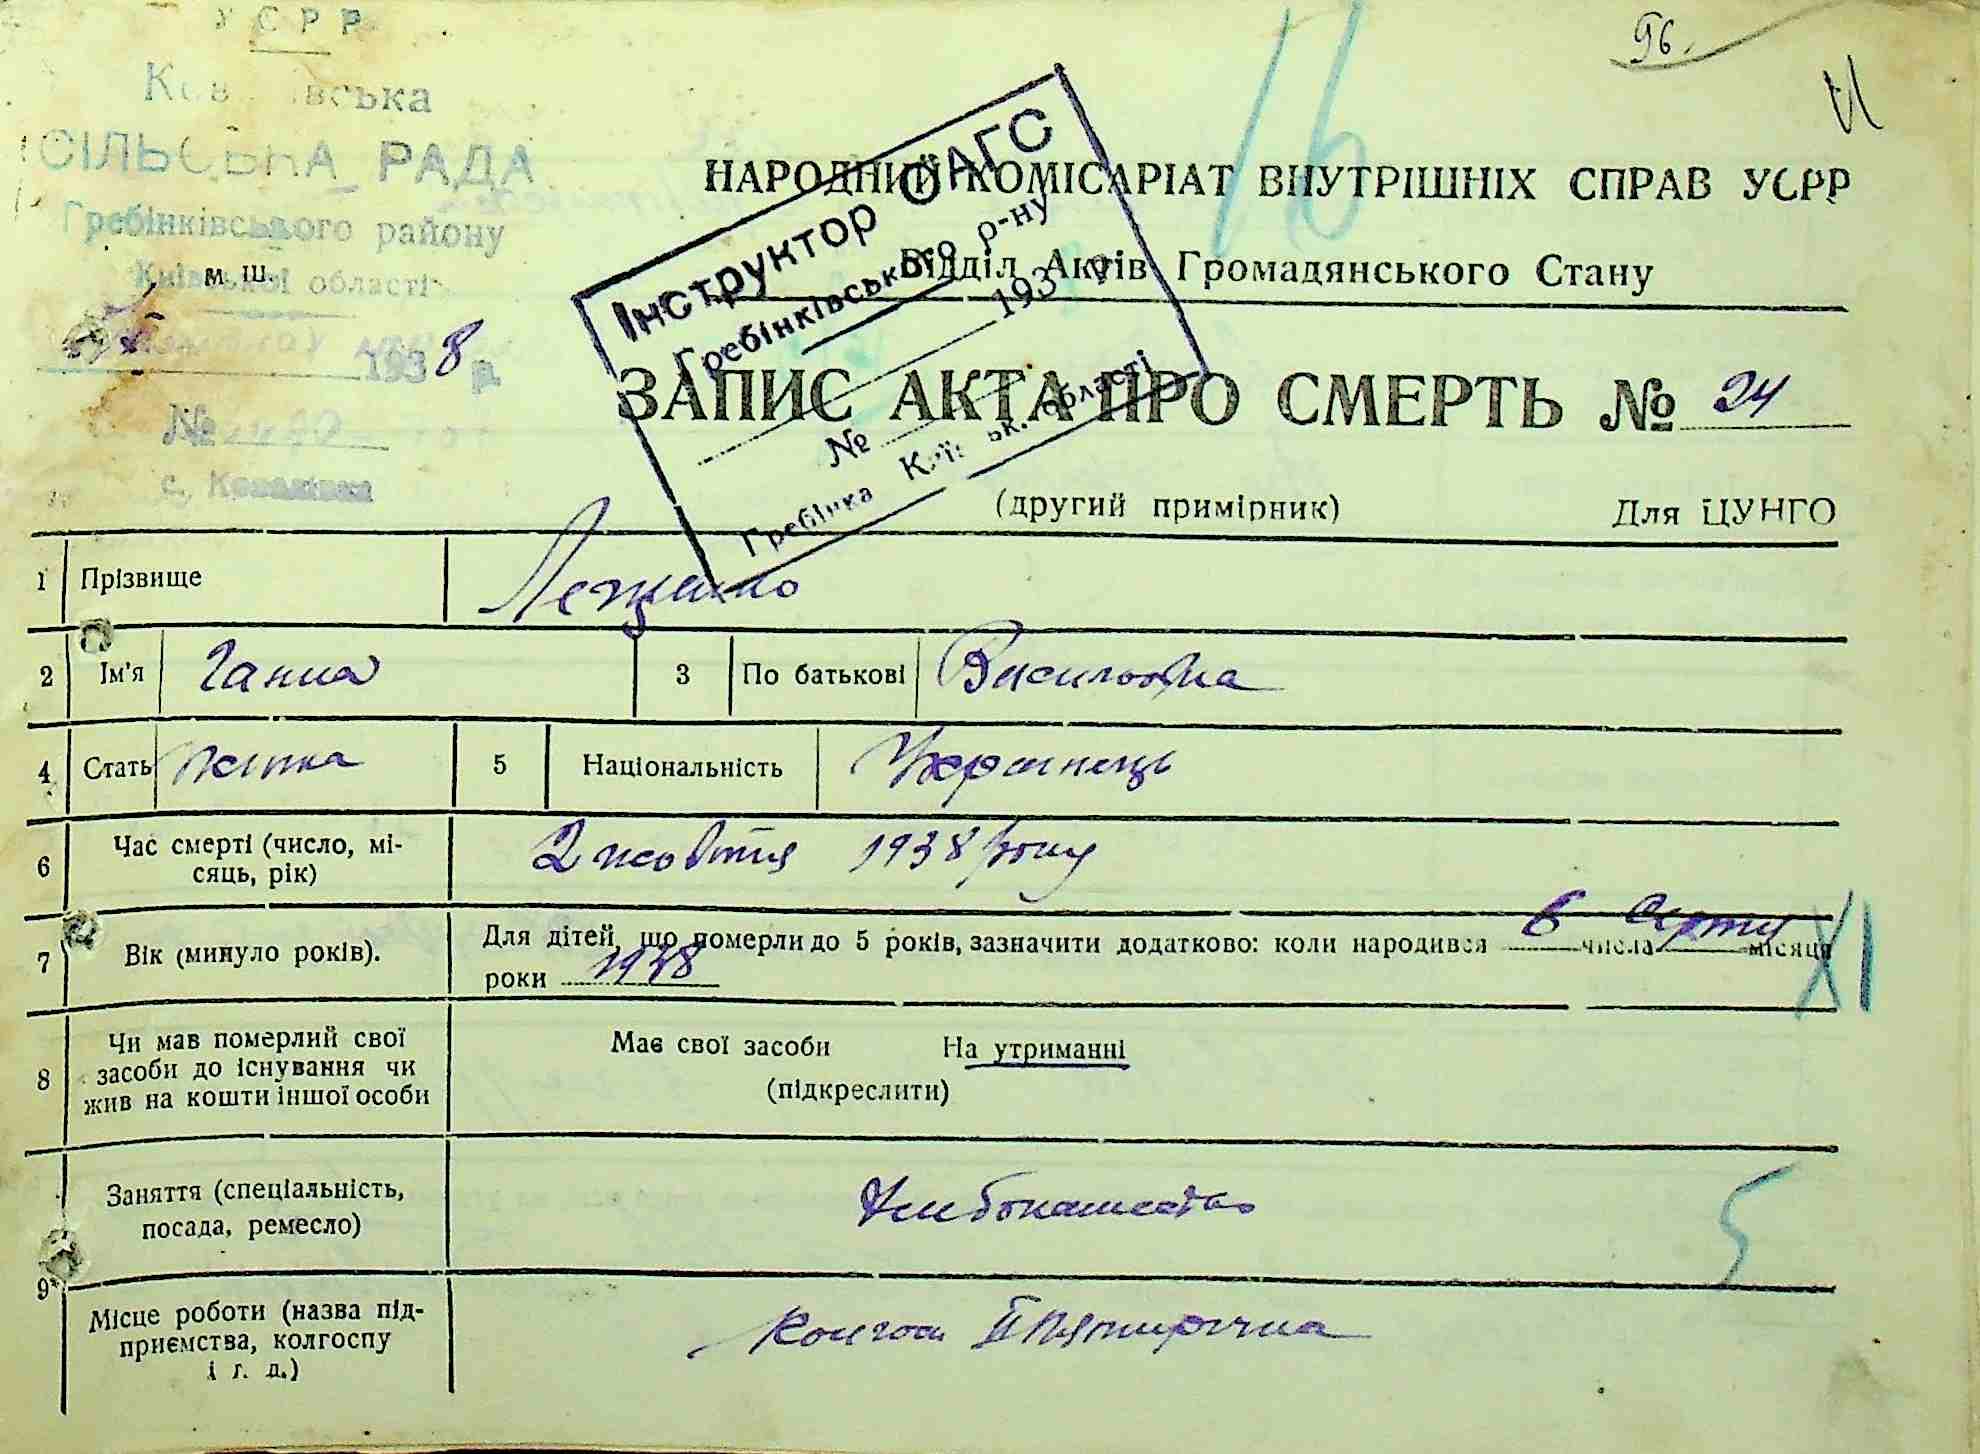 УСРР
СІЛЬСЬКА РАДА
Гребінківського району
Київської області
м. ш.
1938 р.
№
с. Ковалівка
96.
16
НАРОДНИЙ КОМІСАРІАТ ВНУТРІШНІХ СПРАВ УСРР
Відділ Актів Громадянського Стану
Інструктор ОАГС
Гребінківського р-ну
193 р.
№
Гребінка Київськ. області
ЗАПИС АКТА ПРО СМЕРТЬ № 24
(другий примірник) Для ЦУНГО
1 Прізвище Лещенко
2 Ім'я Ганна 3 По батькові Васильовна
4 Стать жінка 5 Національність Українець
6 Час смерті (число, мі-
сяць, рік) 2 жовтня 1938 року
7 Вік (минуло років). Для дітей, що померли до 5 років, зазначити додатково: коли народився 6 числа Серпня місяця
роки 1938
XI
8 Чи мав померлий свої
засоби до існування чи
жив на кошти іншої особи
Має свої засоби На утриманні
(підкреслити)
9 Заняття (спеціальність,
посада, ремесло) Хлібопашество
5
Місце роботи (назва під-
приємства, колгоспу
і т. д.) Колгосп II Пятирічка